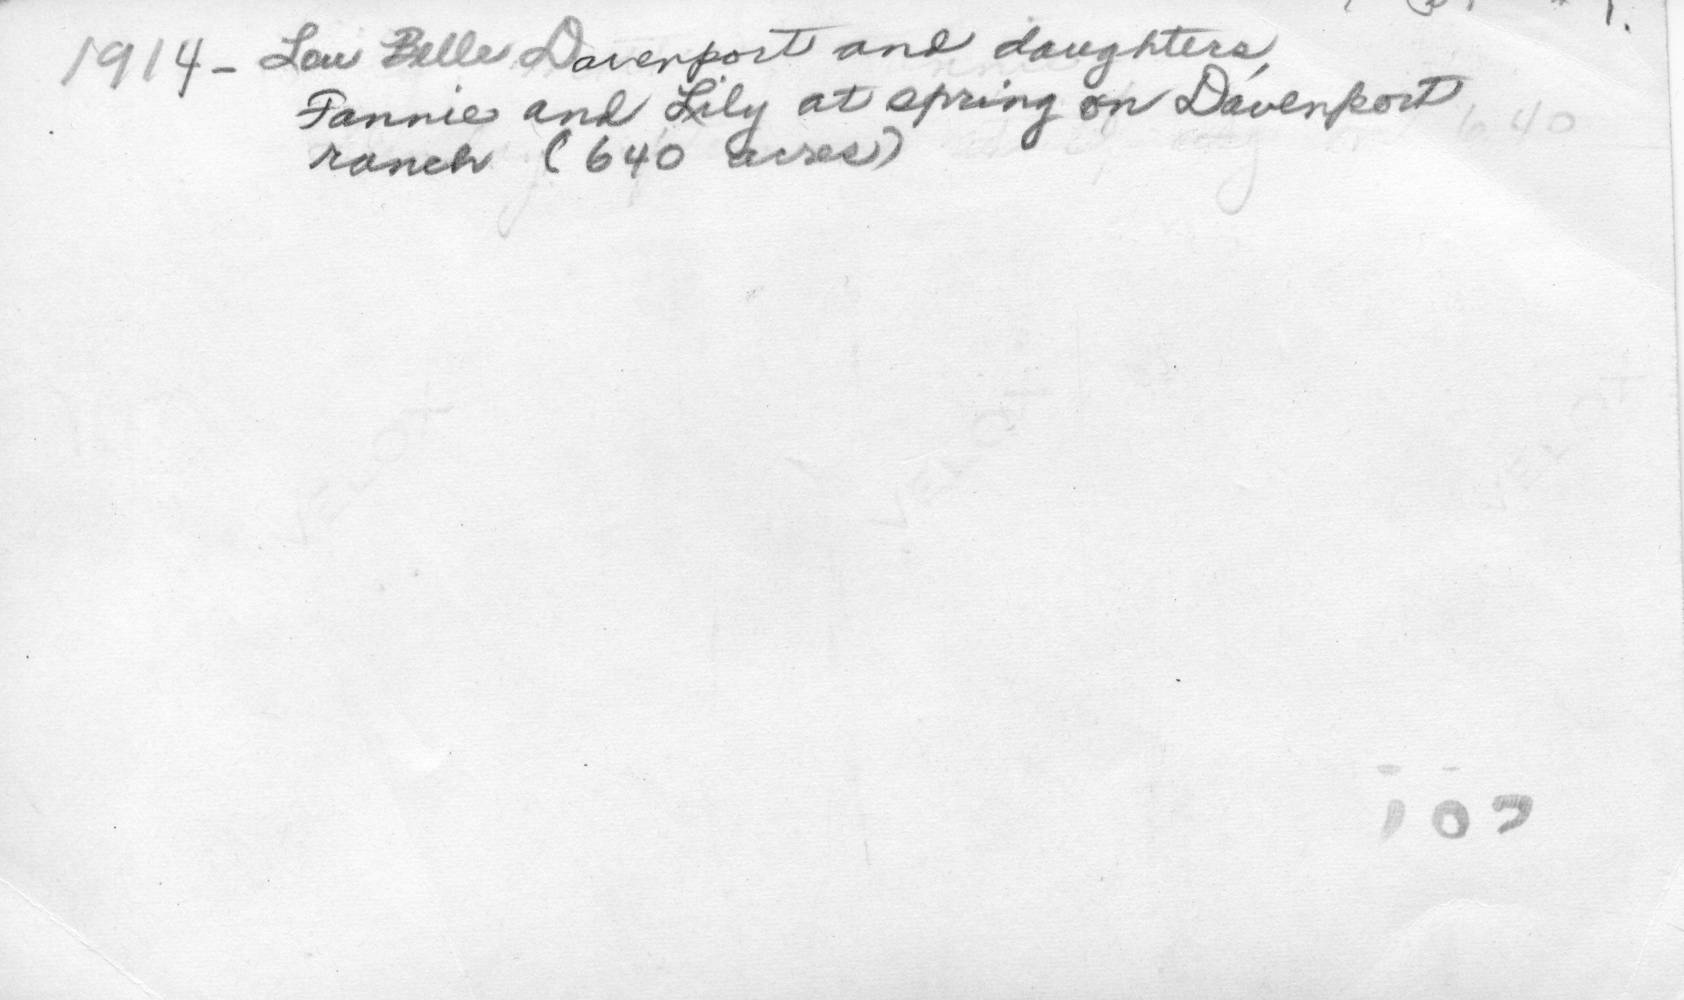 1914 - Lou Belle Davenport and daughters,
Fannie and Lily at spring on Davenport
ranch (640 acres)
640
VELOX VELOX VELOX
107